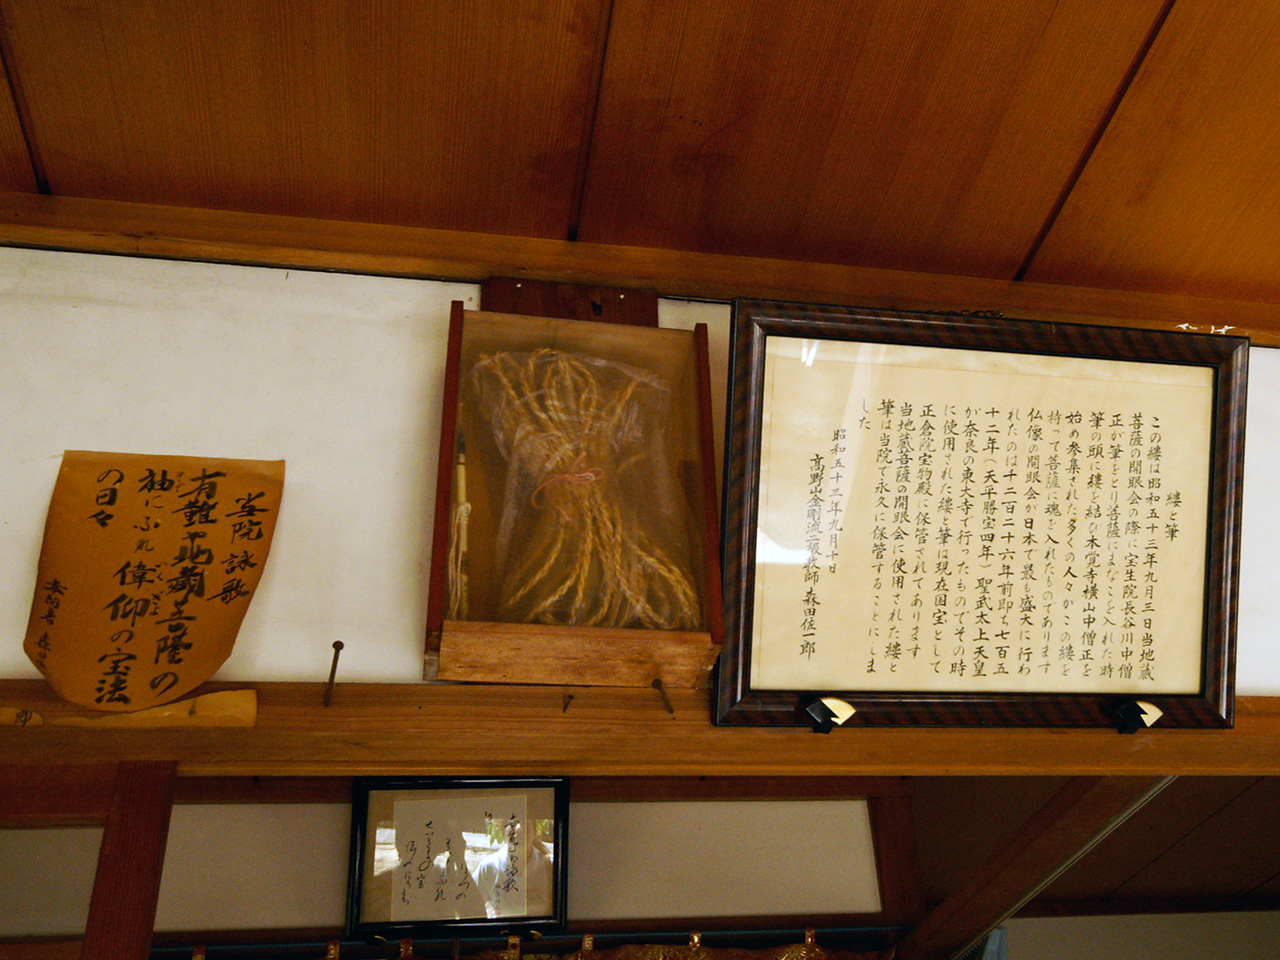 縷と筆
この縷は昭和五十三年九月三日当地蔵
菩薩の開眼会の際に宝生院長谷川中僧
正が筆をとり菩薩にまなこを入れた時
筆の頭に縷を結び本覚寺横山中僧正を
始め参集された多くの人々がこの縷を
持って菩薩に魂を入れたものであります
仏像の開眼会が日本で最も盛大に行わ
れたのは千二百二十六年前即ち七百五
十二年(天平勝宝四年)聖武太上天皇
が奈良の東大寺で行ったものでその時
に使用された縷と筆は現在国宝として
正倉院宝物殿に保管されてあります
当地蔵菩薩の開眼会に使用された縷と
筆は当院で永久に保管することにしま
した
昭和五十三年九月十日
高野山金剛流二級教師 森田佐一郎
当院詠歌
有難や地蔵菩薩の
袖にふれ偉仰の宝法
の日々